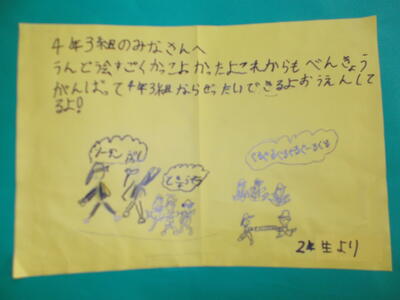 4年3組のみなさんへ
うんどう会すごくかっこよかったよこれからもべんきょう
がんばって4年3組ならぜったいできるよおうえんして
るよ!
ソーラン ぶし
2年生より